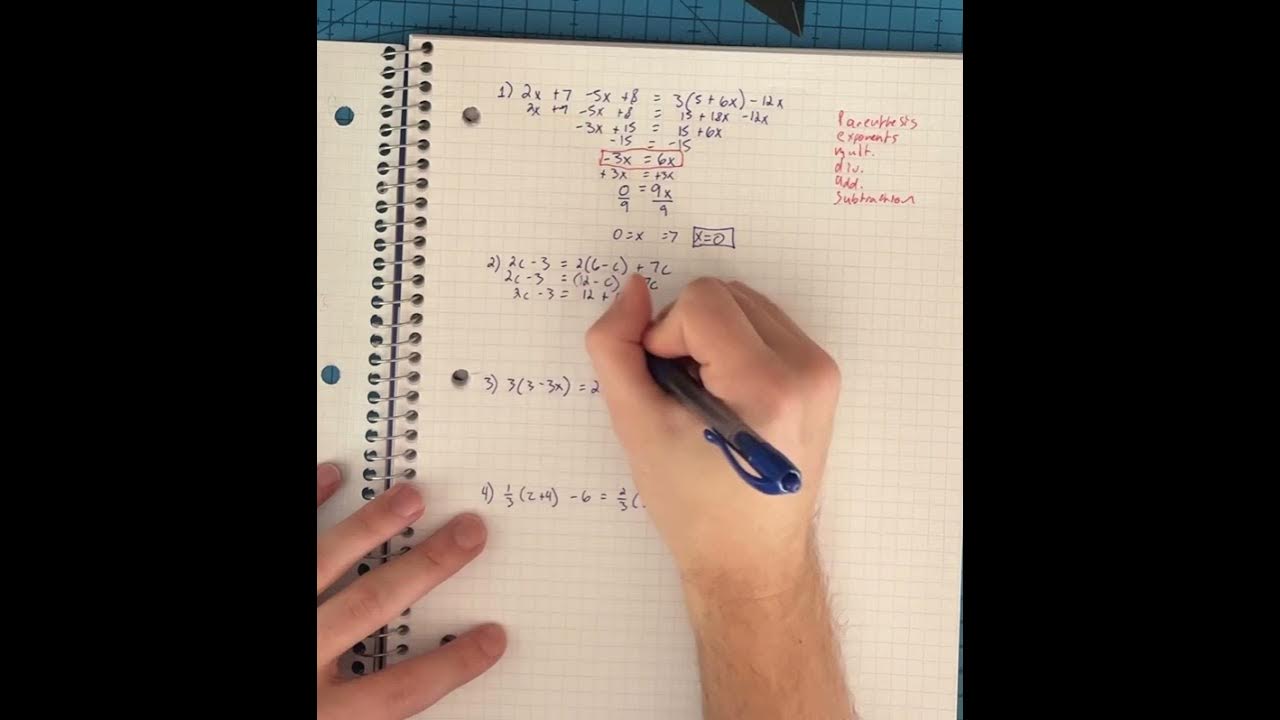 1) 2x + 7 - 5x + 8 = 3(5 + 6x) - 12x
2x + 7 - 5x + 8 = 15 + 18x - 12x
-3x + 15 = 15 + 6x
-15 = -15
-3x = 6x
+3x = +3x
0 = 9x
9 9
0 = x => x = 0
Parenthesis
exponents
mult.
div.
add.
subtraction
2) 2c - 3 = 2(6 - c) + 7c
2c - 3 = (12 - c) 7c
2c - 3 = 12 +
3) 3(3 - 3x) = 2
4) 1/3 (z + 4) - 6 = 2/3 (